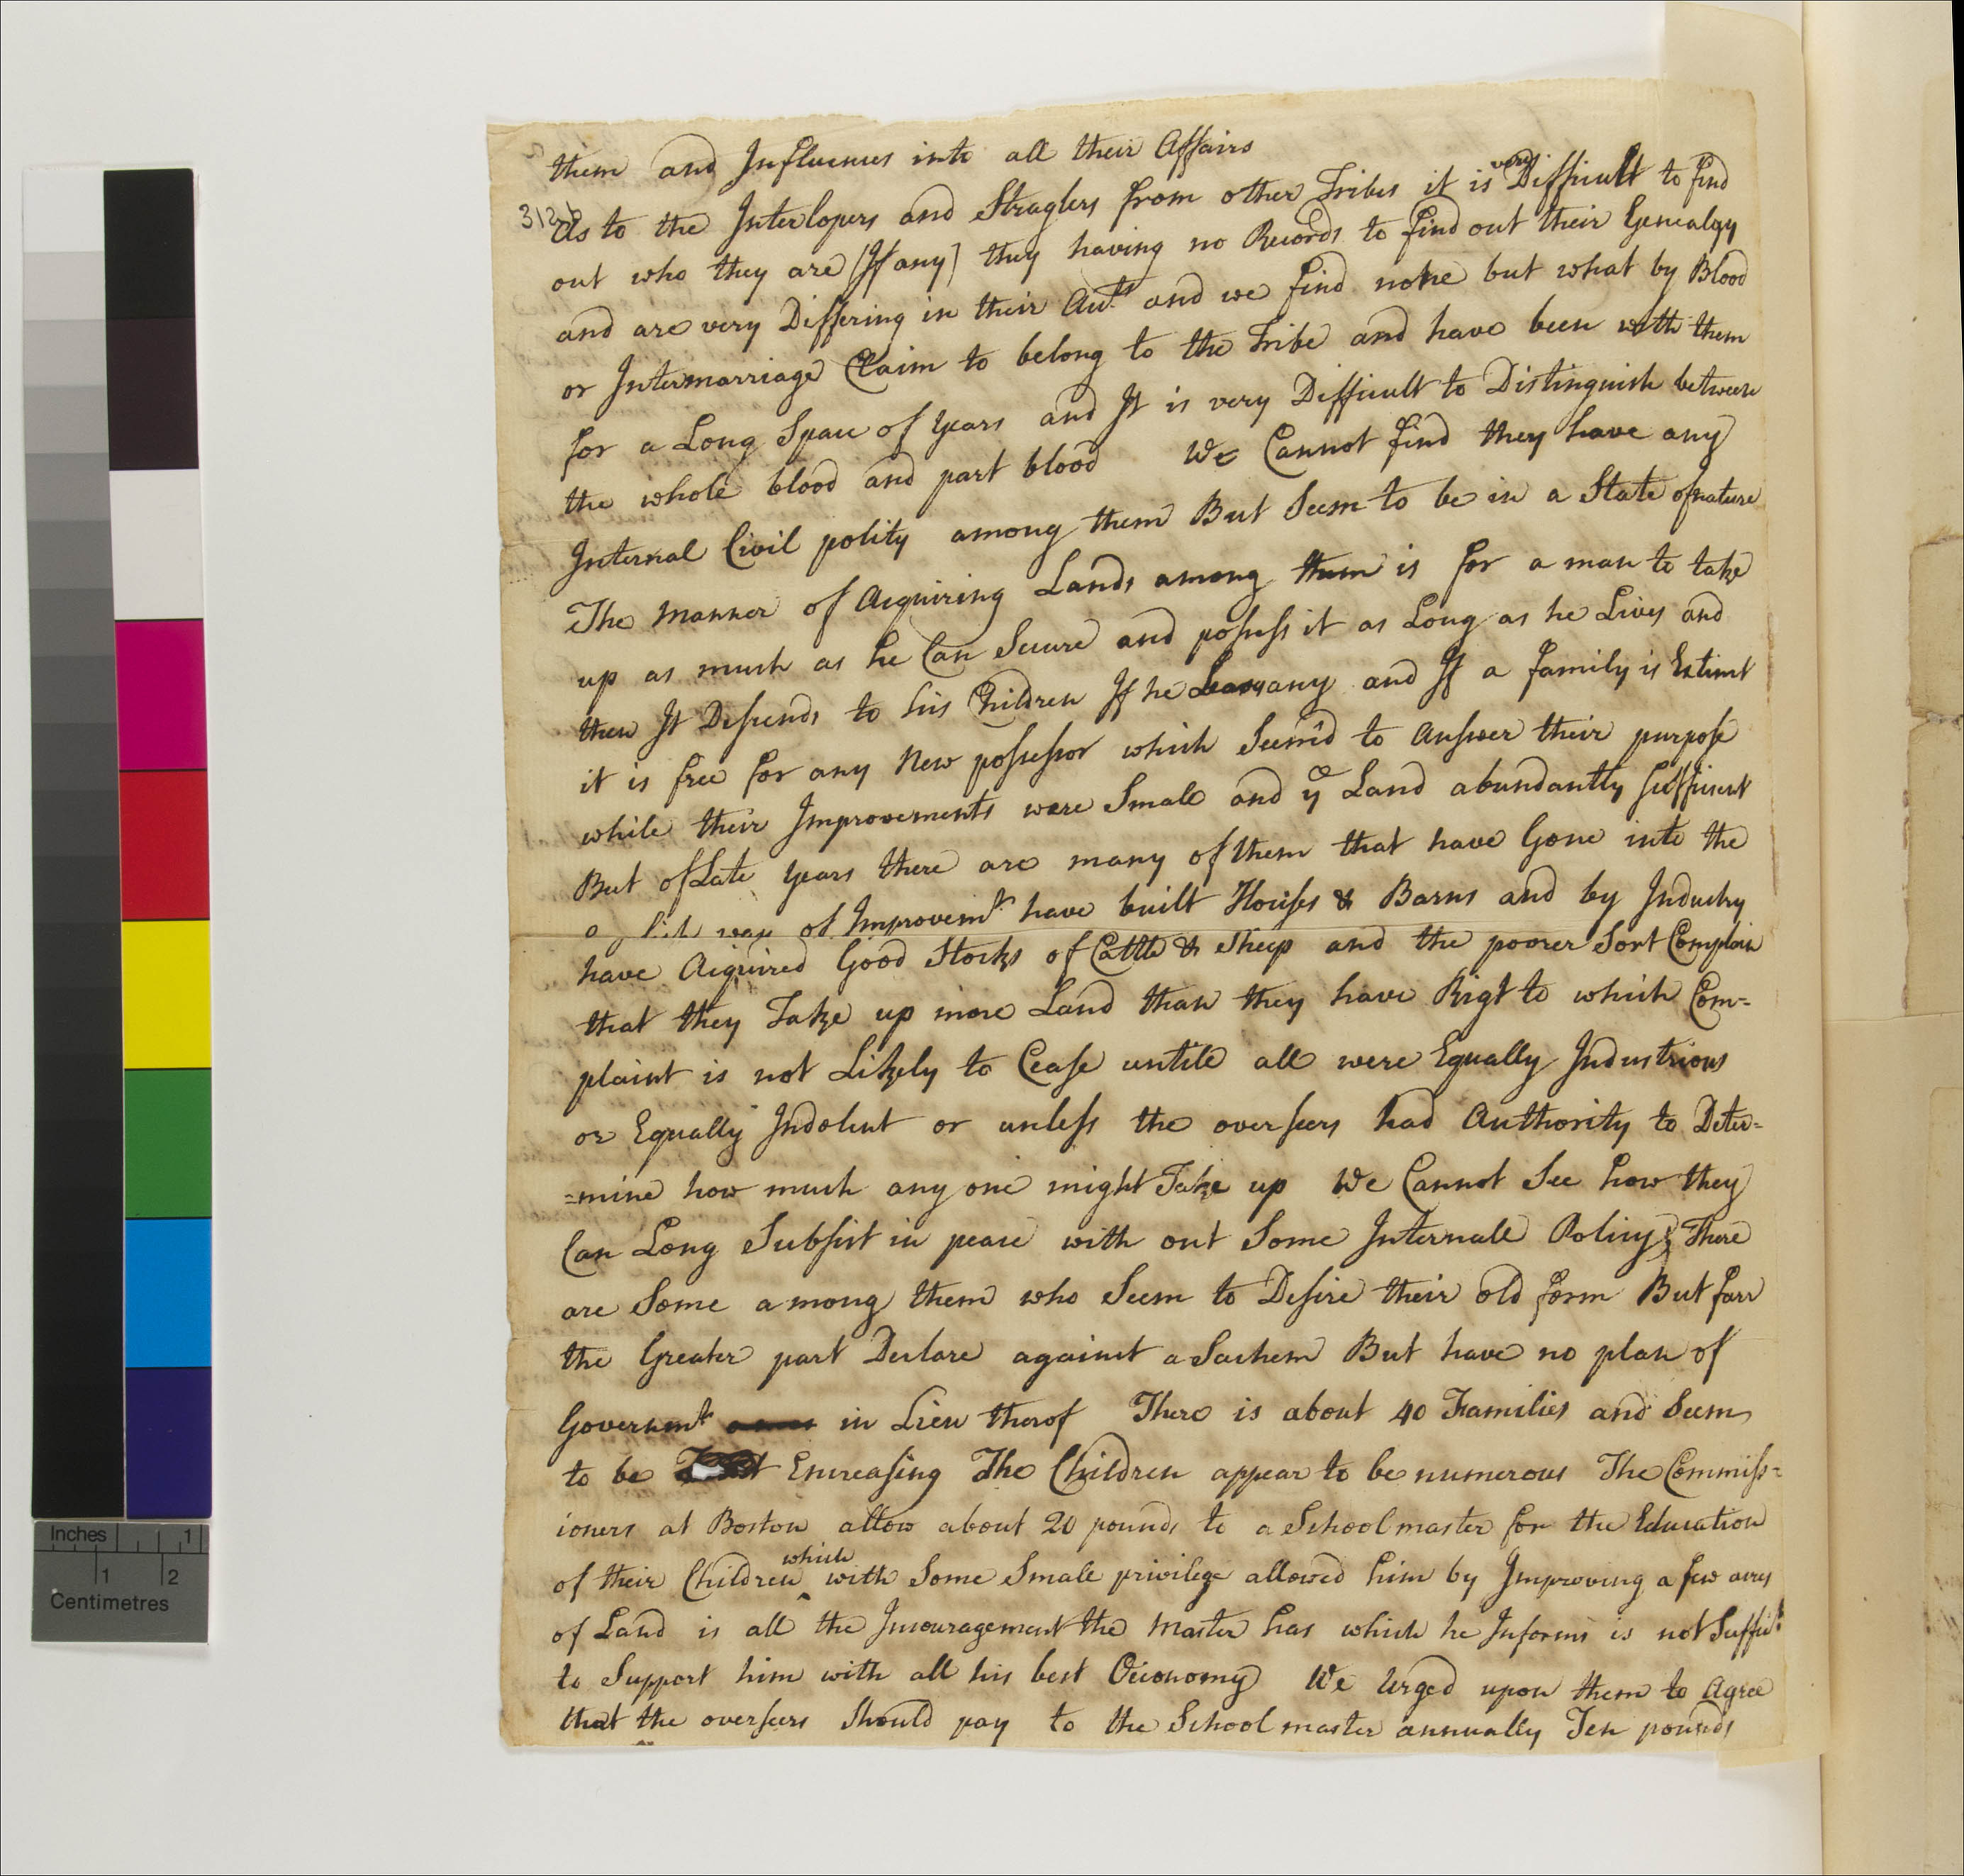 them and Influences into all their Affairs
312b
As to the Interlopers and Straglers from other Tribes it is very Difficult to find
out who they are (If any) they having no Records to find out their Genealgy
and are very Differing in their Acts. and we find none but what by Blood
or Intermarriage Claim to belong to the Tribe and have been with them
for a Long Space of Years and It is very Difficult to Distinguish between
the whole blood and part blood We Cannot find they have any
Internal Civil polity among them But Seem to be in a State of nature
The Manner of Acquiring Lands among them is for a man to take
up as much as he Can Secure and possess it as Long as he Lives and
then It Descends to his Children If he Leaves any and If a family is Extinct
it is free for any New possessor which Seem'd to Answer their purpose
while their Improvements were Small and ye Land abundantly sufficient
But of Late Years there are many of them that have Gone into the
way of Improvemt. have built Houses & Barns and by Industry
have Acquired Good Stocks of Cattle & Sheep and the poorer Sort Complain
that they Take up more Land than they have Rigt to which Com=
plaint is not Likely to Cease untile all were Equally Industrious
or Equally Indolent or unless the overseers had Authority to Deter=
=mine how much any one might Take up We Cannot See how they
Can Long Subsist in peace with out Some Internall Policy; There
are Some among them who Seem to Desire their old form But farr
the Greater part Declare against a Sachem But have no plan of
Governmt. in Lieu therof There is about 40 Families and Seem
to be Encreasing The Children appear to be numerous The Commiss=
ioners at Boston allow about 20 pounds to a School master for the Education
of their Children which with Some Smale privilege allowed him by Improving a few acres
of Land is all the Incouragement the Master has which he Informs is not Suffict.
to Support him with all his best Oeconomy We Urged upon them to Agree
that the overseers Should pay to the School master annually Ten pounds